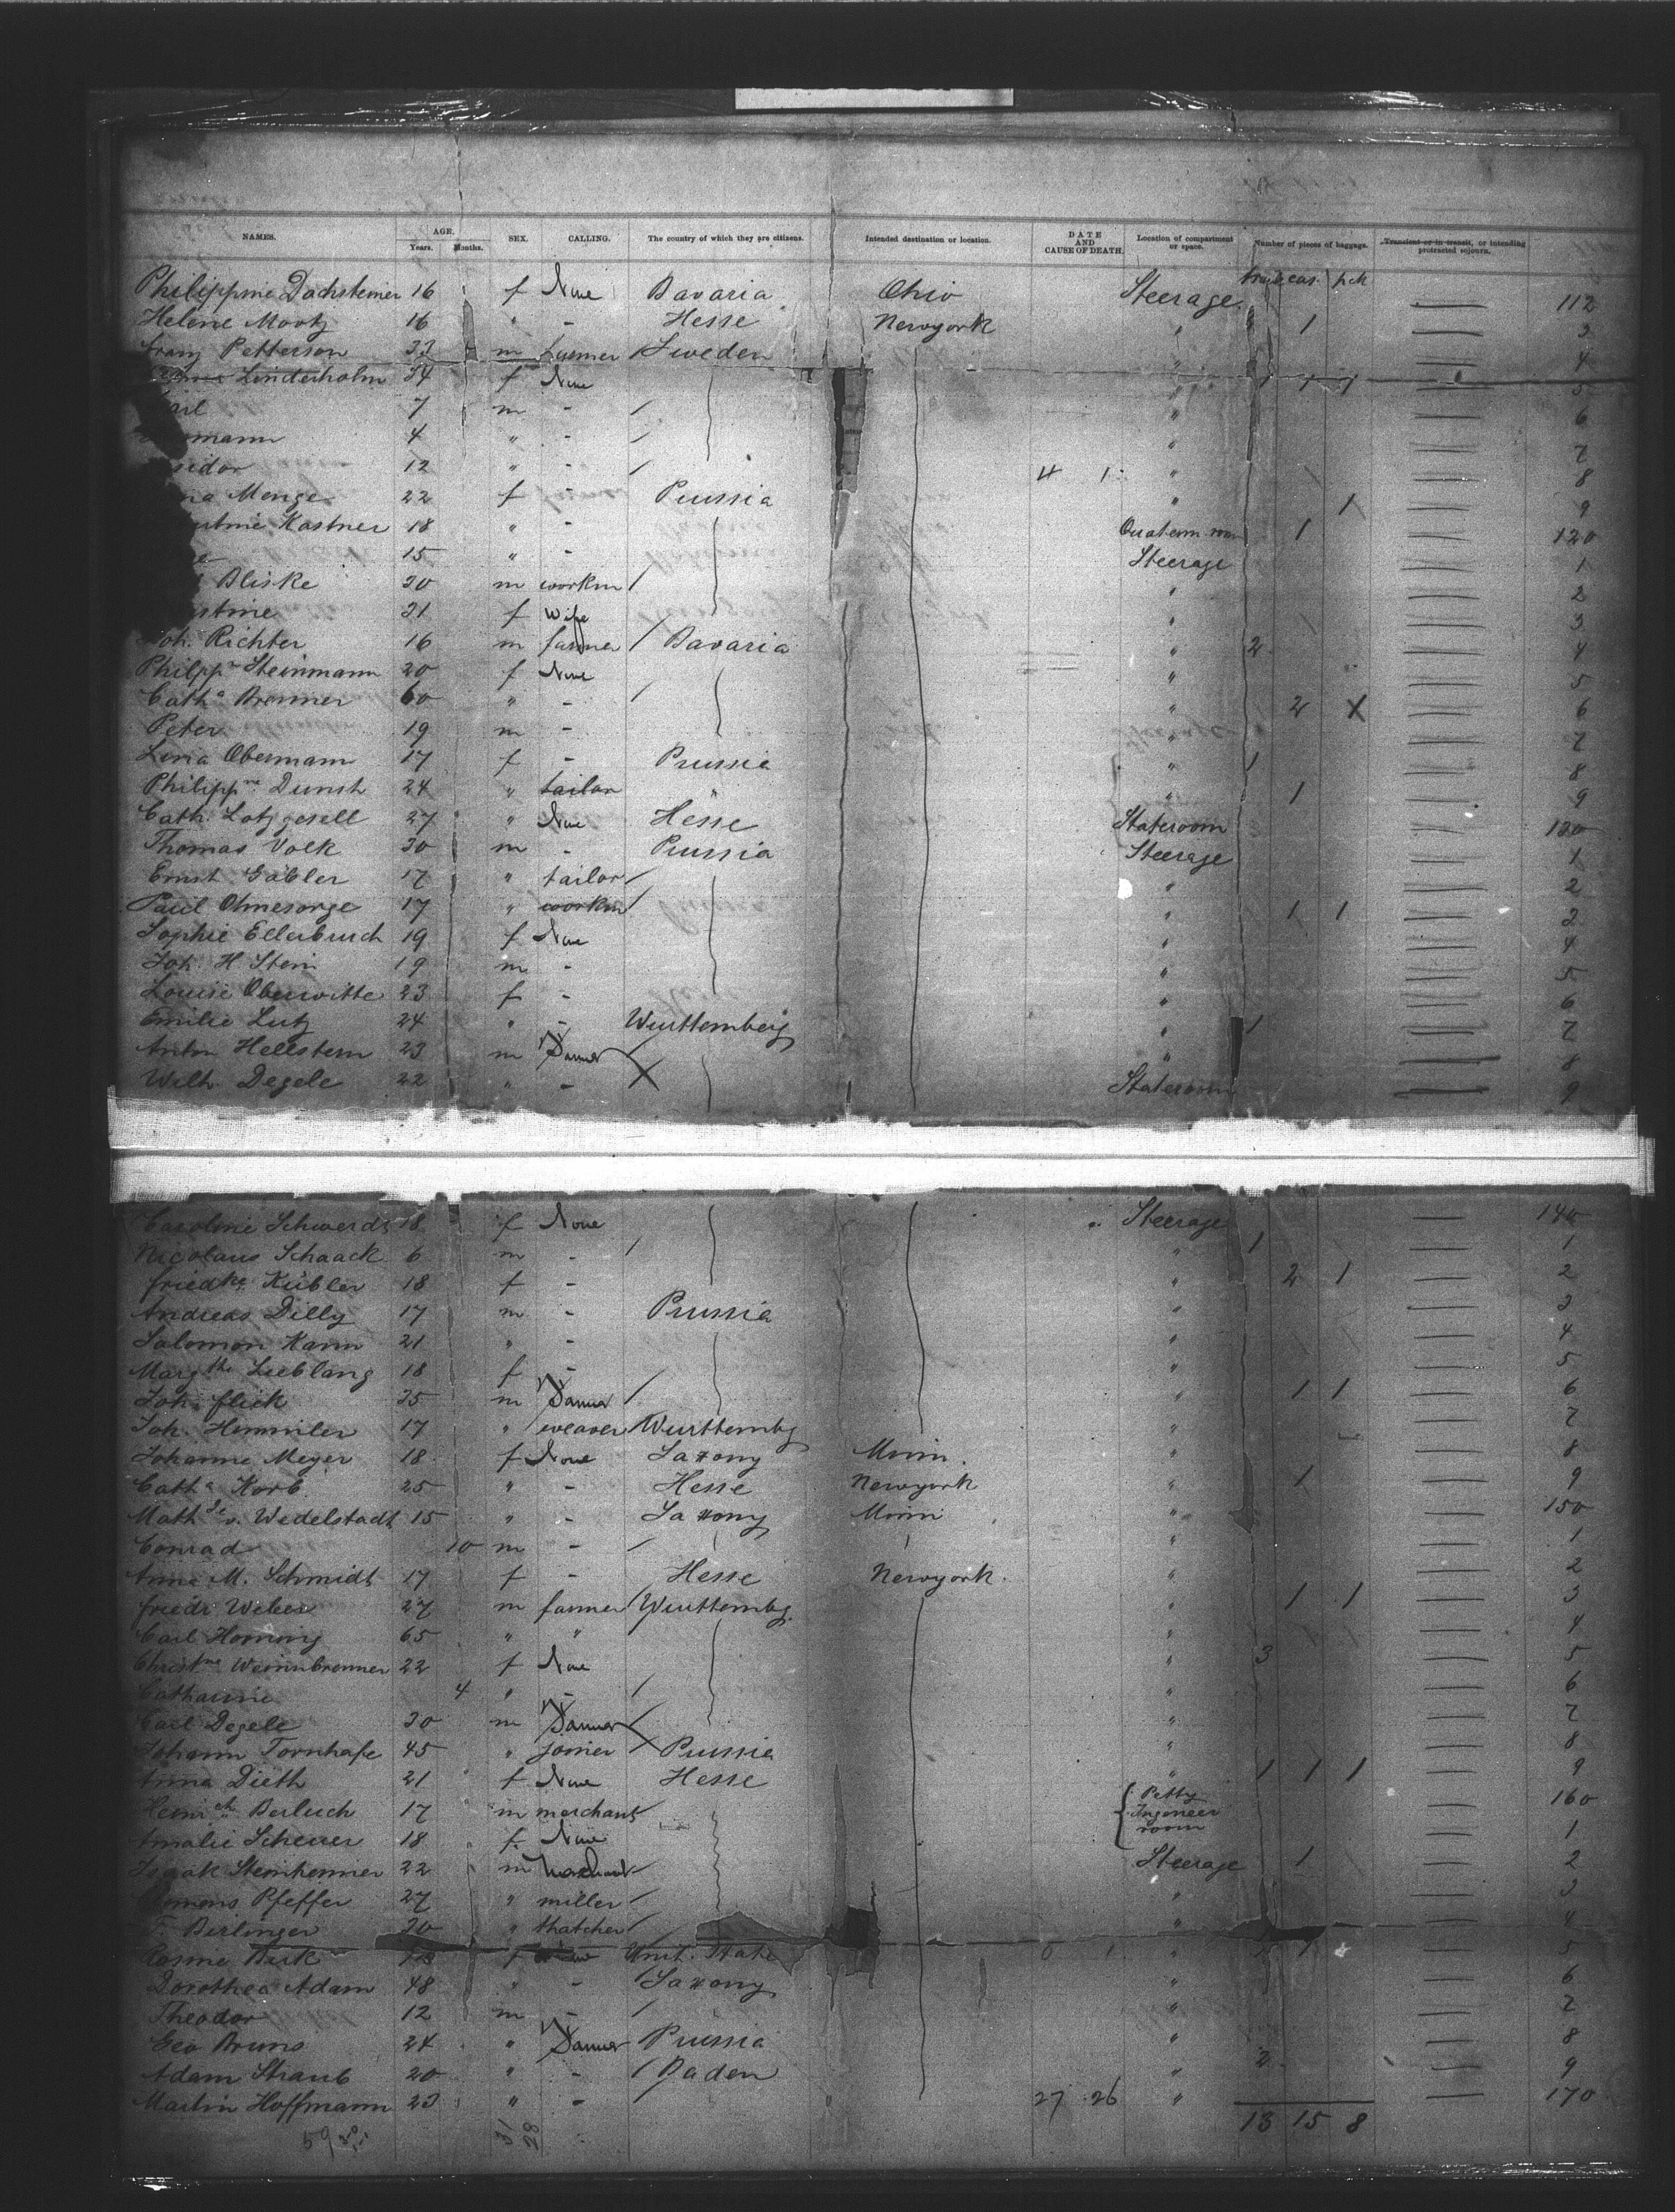 NAMES. AGE. SEX. CALLING. The country of which they are citizens. Intended destination or location. DATE AND CAUSE OF DEATH. Location of compartment or space. Number of pieces of baggage. Transient or in transit, or intending protracted sojourn.
Years. Months.
Philippine Dachsteiner 16 f None Bavaria Ohio Steerage 112
Helene Mootz 16 " - Hesse Newyork " 1 3
Franz Petterson 33 m farmer Sweden " 4
Linderholm 34 f None " 1 1 1 5
7 m - " 6
4 " - " 7
12 " - 4 1 " 8
Menge 22 f - Prussia " 1 9
Kastner 18 " - 1 120
15 " - Steerage 1
Bliske 30 m workm " 2
31 f Wife " 3
Joh. Richter 16 m farmer Bavaria " 2 4
Philippn Steinmann 20 f None " 5
Catha Brenner 60 " - " 2 X 6
Peter 19 m - " 7
Lina Obermann 17 f - Prussia " 1 8
Philippne Dunsh 24 " tailor " " 1 9
Cath. Lotzgesell 27 " None Hesse Stateroom 130
Thomas Volk 30 m - Prussia Steerage 1
Ernst Gäbler 17 " tailor " 2
Paul Ohnesorge 17 " workm " 1 1 3
Sophie Ellerbruch 19 f None " 4
Joh. H. Stein 19 m - " 5
Louise Oberwitte 23 f - " 6
Emilie Lutz 24 " - Wurttemberg " 1 7
Anton Hellstern 23 m Farmer " 8
Wilh Degele 22 " - X Stateroom 9
Caroline Schwerdt 18 f None Steerage 140
Nicolaus Schaack 6 m - " 1 1
Friedke Kübler 18 f - " 2 1 2
Andreas Dilly 17 m - Prussia " 3
Salomon Kann 21 " - " 4
Margthe Lieblang 18 f - " 5
Joh. Flick 35 m Farmer " 1 1 6
Joh. Hemmiler 17 " weaver Wurttembg " 7
Johanne Meyer 18 f None Saxony Minn. " 8
Catha Korb 25 " - Hesse Newyork " 1 9
Mathde v. Wedelstadt 15 " - Saxony Minn " 150
Conrad 10 m - " 1
Anna M. Schmidt 17 f - Hesse Newyork. " 2
Friedr Weber 27 m farmer Wurttembg. " 1 1 3
Carl Horning 65 " " " 4
Christne Weinnbrenner 22 f None " 3 5
Catharine 4 " - " 6
Carl Degele 30 m Farmer " 7
Johann Tornhafe 45 " joiner Prussia " 8
Anna Dieth 21 f None Hesse " 1 1 1 9
Heinrch Berluch 17 m merchant Petty Ingeneer room 160
Amalie Scherer 18 f None 1
Isaak Steinhemmer 22 m merchant Steerage 1 2
Clemens Pfeffer 27 " miller " 3
F. Berlinger 30 " thatcher " 4
Rosine Birk f Unit. State " 5
Dorothea Adam 48 " - Saxony " 6
Theodor 12 m - " 7
Geo Bruns 24 " Farmer Prussia " 8
Adam Straub 20 " - Baden " 2 9
Martin Hoffmann 23 " - 27 26 " 170
59 31 28 13 15 8